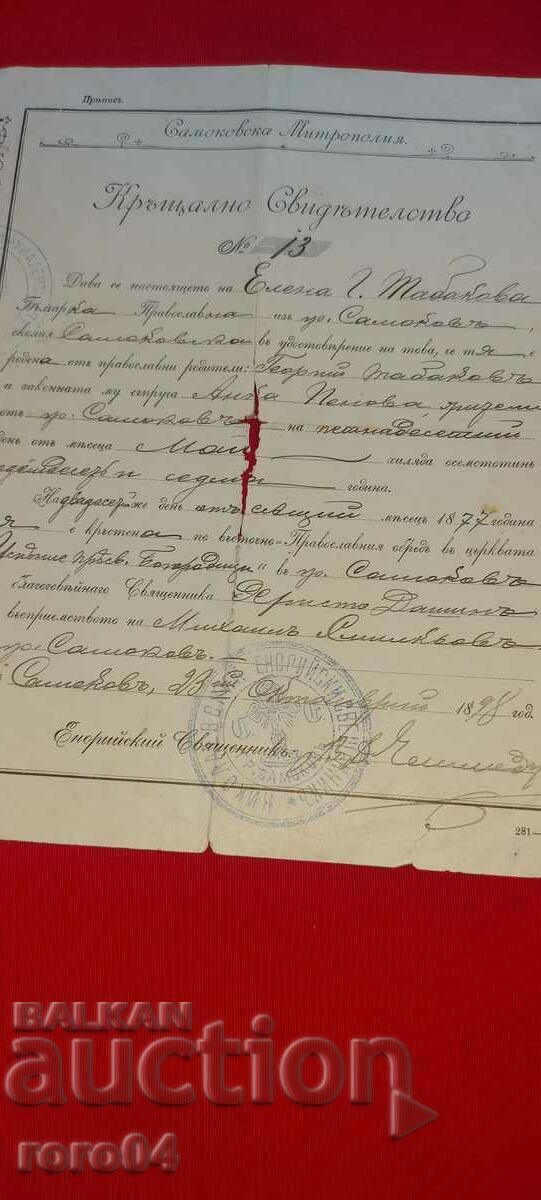 Прѣписъ.
Самоковска Митрополия.
Кръщално Свидѣтелство
№ 13
Дава се настоящето на Елена Г. Табакова
Православна изъ гр. Самоковъ,
Самоковска въ удостовѣрение на това, че тя е
родена отъ православни родители: Георгий Табаковъ
и законната му съпруга Анка Пенова
отъ гр. Самоковъ на петнадесетий
день отъ мѣсеца Май хиляда осемстотинъ
седемдесеть и седма година.
На двадесетий же день отъ същий мѣсецъ 1877 година
тя е кръстена по въсточно-Православния обредъ въ церквата
Успение прѣсв. Богородици" въ гр. Самоковъ
благоговѣйнаго Священника
въсприемството на Михаилъ
гр. Самоковъ.
Самоковъ, 23ий Октомврий 1898 год.
Енорийский Священникъ:
281—
BALKAN
auction
roro04